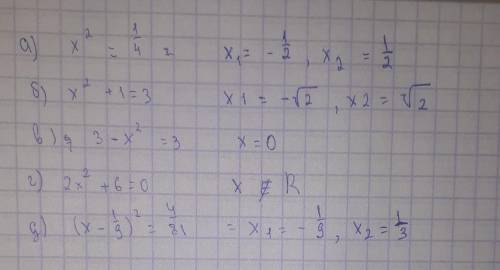 а) x² = 1/4 = x₁ = -1/2, x₂ = 1/2
б) x² + 1 = 3 x1 = -√2, x2 = √2
в) 3 - x² = 3 x = 0
г) 2x² + 6 = 0 x ∉ R
д) (x - 1/9)² = 4/81 = x₁ = -1/9, x₂ = 1/3